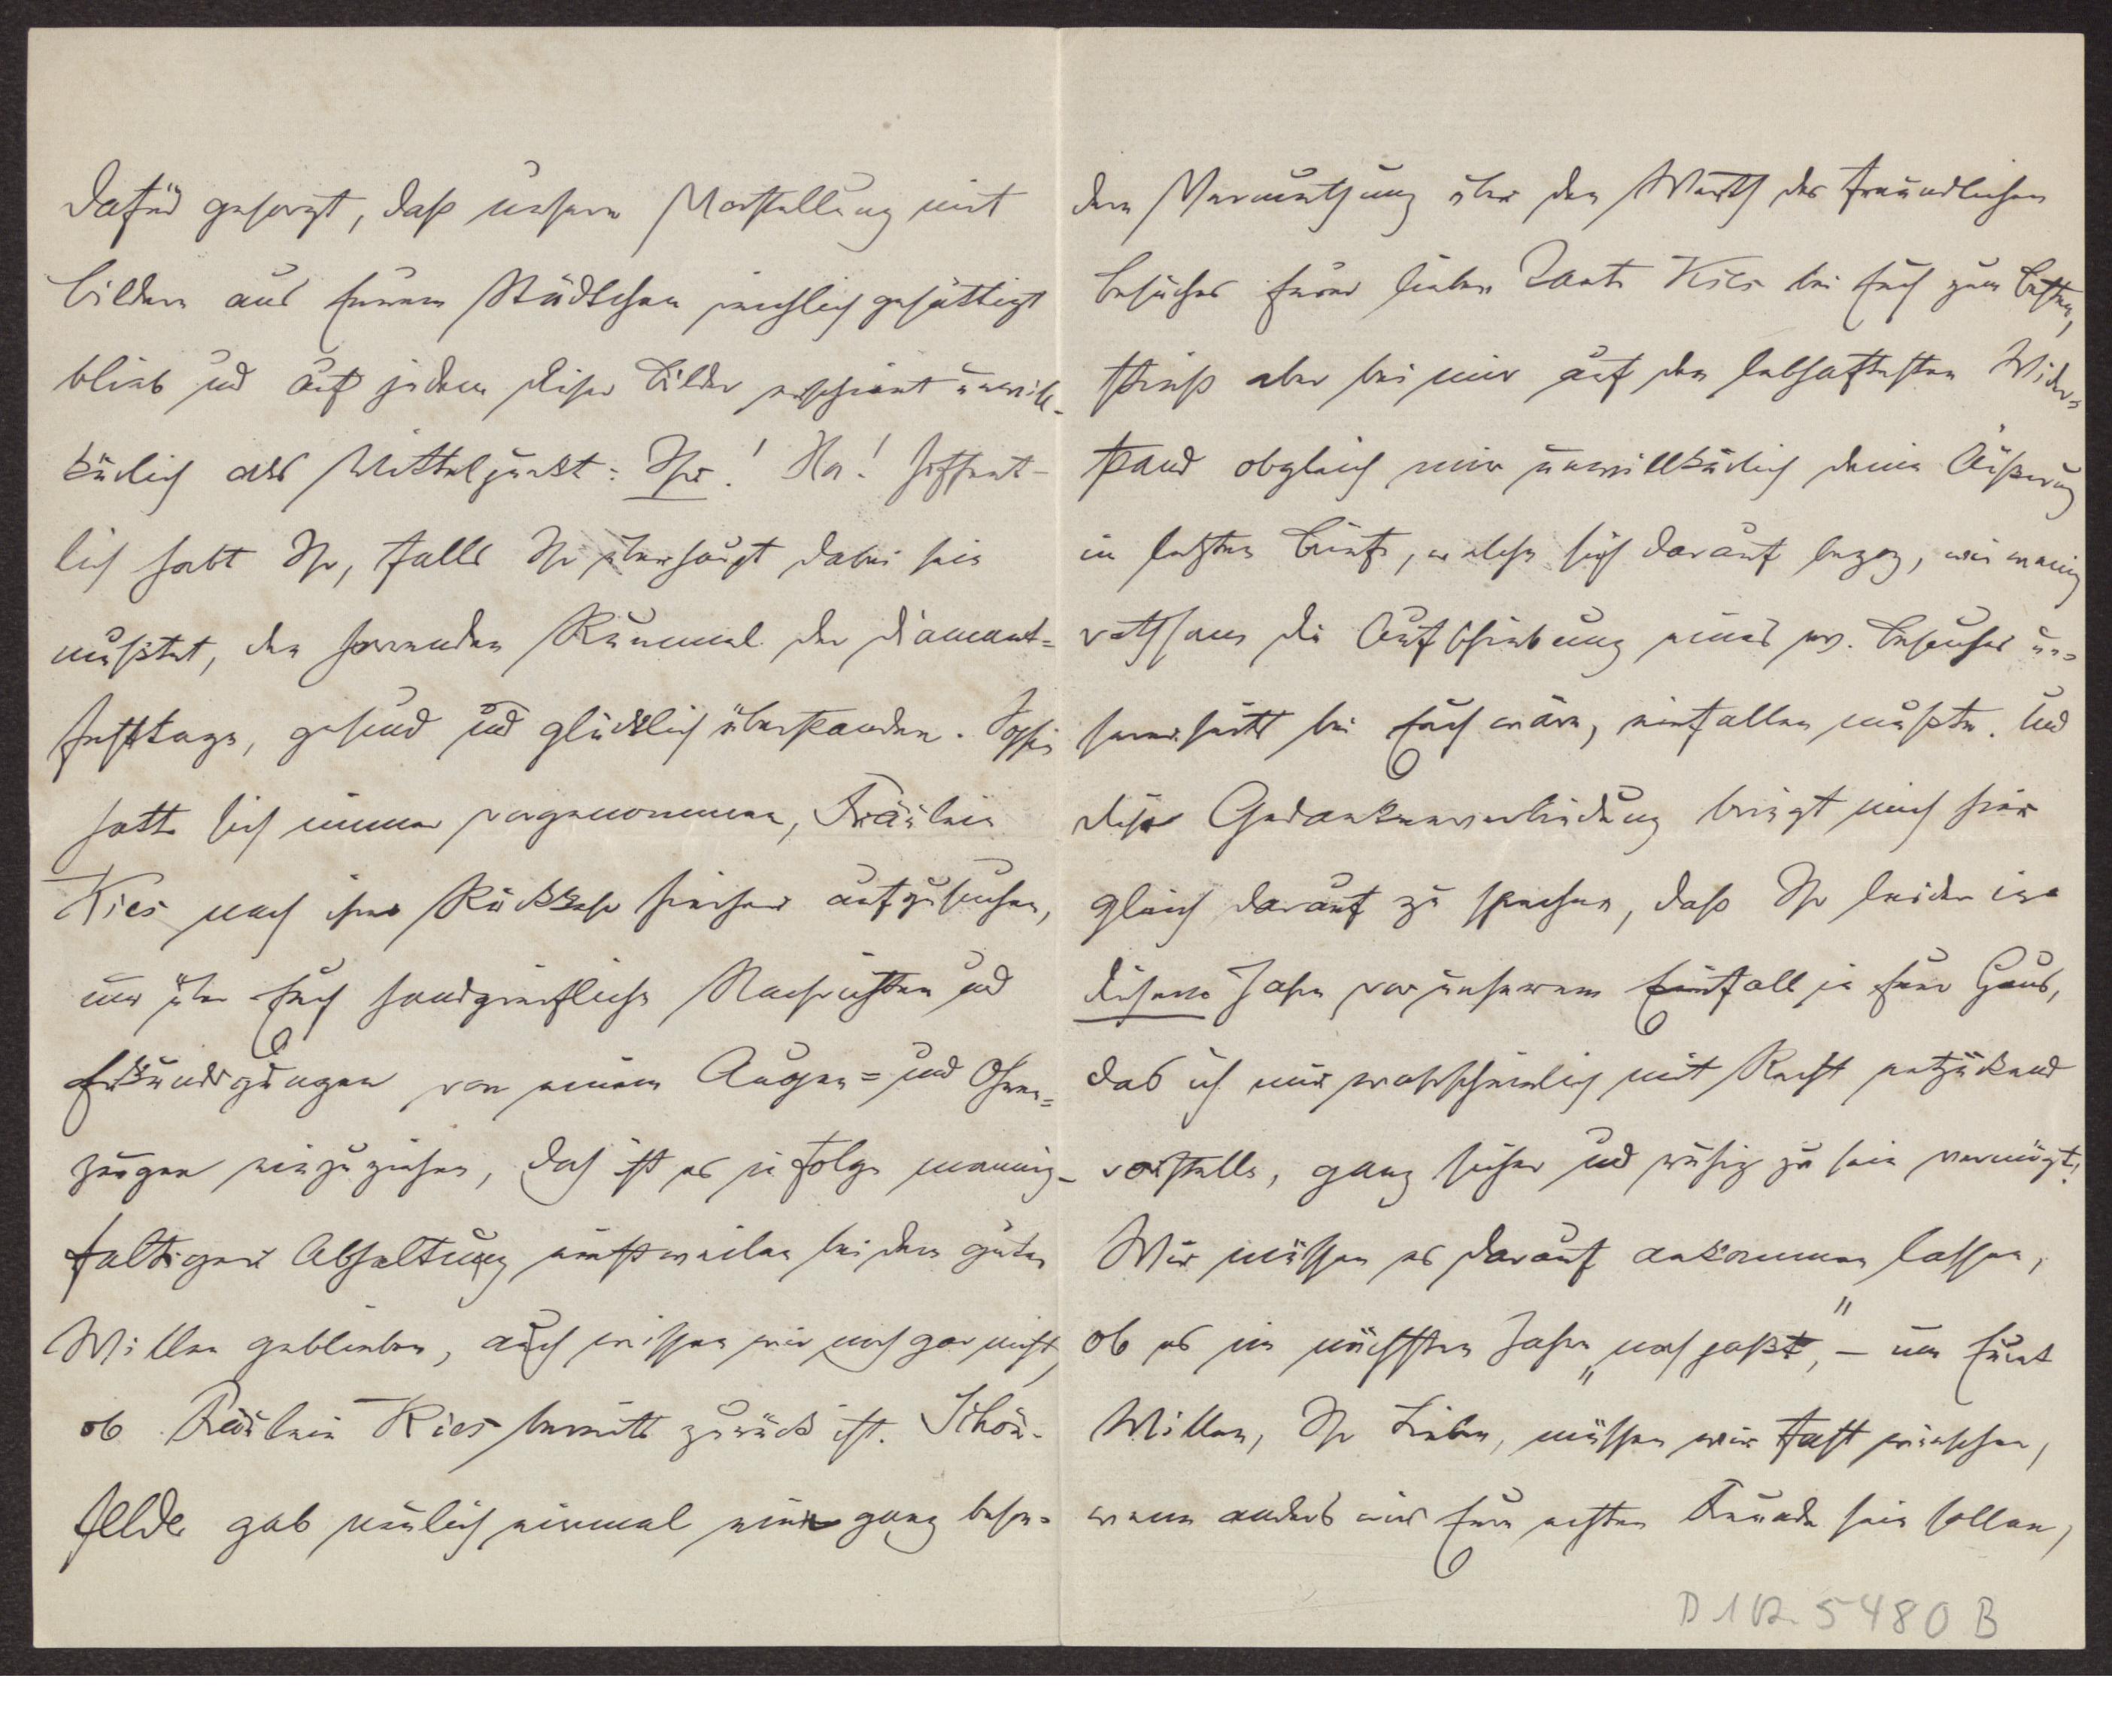 dafür gesorgt, daß unsere Vorstellung mit
Bildern aus Eurem Städtchen reichlich gesättigt
blieb und auf jedem dieser Bilder erscheint unwill-
kürlich als Mittelpunkt: Ihr! Na! hoffent-
lich habt Ihr, falls Ihr überhaupt dabei sein
mußtet, den Rummel der Diamant=
festtage, gesund und glücklich überstanden. Sophie
hatte sich immer vorgenommen, Fräulein
Kies nach ihrer Rückkehr hierher aufzusuchen,
um über Euch handgreifliche Nachrichten und
Erkundigungen von einem Augen= und Ohren=
zeugen einzuziehen, doch ist es in Folge mannig-
faltiger Abhaltung einstweilen bei dem guten
Willen geblieben, auch wissen wir noch gar nicht,
ob Fräulein Kies bereits zurück ist. Schön-
felder gab neulich einmal eine ganz beson=
dere Vermuthung über den Werth des freundlichen
Besuches Eurer lieben Tante Kies bei Euch zum Besten,
stieß aber bei mir auf den lebhaftesten Wider=
stand obgleich mir unwillkürlich deine Äußerung
im letzten Briefe, welche sich darauf bezog, wie wenig
rathsam die Aufschiebung eines ev. Besuches un=
sererseits bei Euch wäre, einfallen mußte. Und
diese Gedankenverbindung bringt mich hier
gleich darauf zu sprechen, daß Ihr leider in
diesem Jahre vor unserem Einfall in Euer Haus,
das ich mir wahrscheinlich mit Recht entzückend
vorstelle, ganz sicher und ruhig zu sein vermögt!
Wir müssen es darauf ankommen lassen,
ob es im nächsten Jahre „noch paßt", – um Euret
Willen, Ihr Lieben, müssen wir fast wünschen,
wenn anders wir Eure echten Freunde sein sollen,
D 1 5480 B